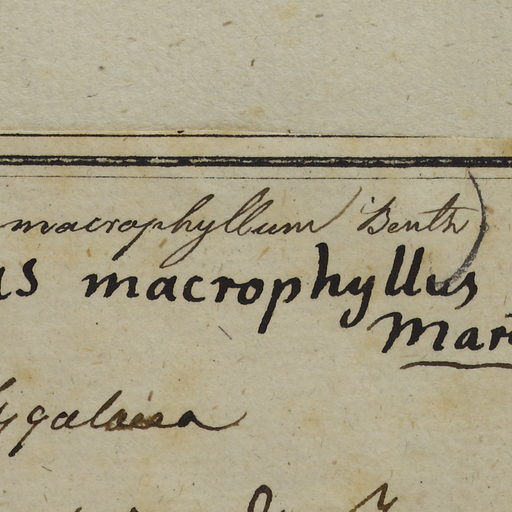 macrophyllum Benth)
us macrophyllus
Mart
lygalaea